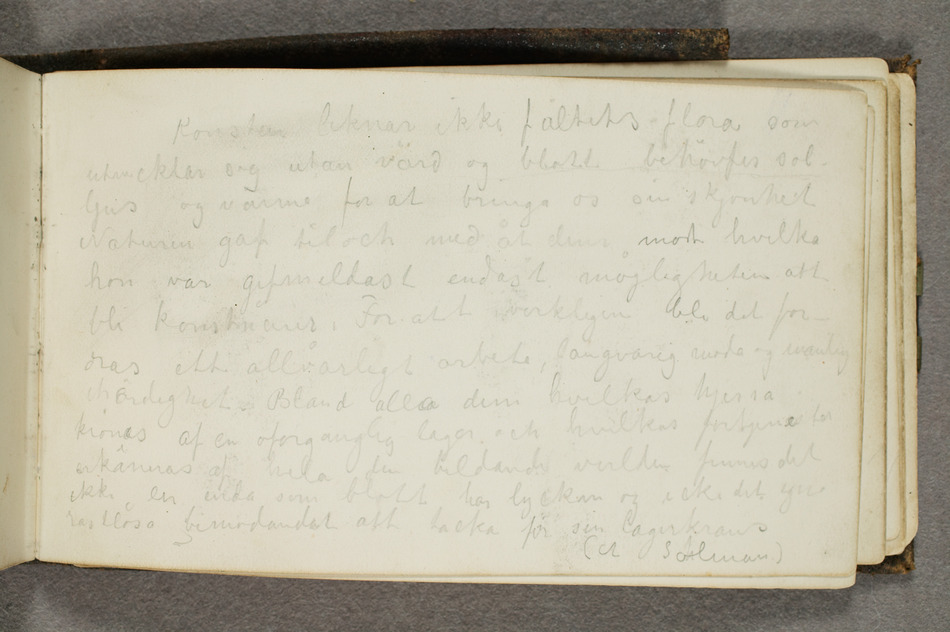 Konsten liknar ikke fältets flora som
utvecklar sig utan vård og blott behöfves sol-
ljus og varme for at bringe os sin skjonhet
Naturen gaf til och med åt dem mot hvilka
hon var gifmildast endast mögligheten att
bli konstnerer. For att verkligen bli det for-
dras ett allvarligt arbete, långvarig möda og manlig
ihärdighet. Bland alla dem hvilkas hjessa
krönes af en oforganglig lager och hvilkas fortjenester
erkännas af hela den bildande verlden finnes det
ikke en enda som blott har lyckan og icke det
rastlösa bemödandet att tacka för sin lagerkrans